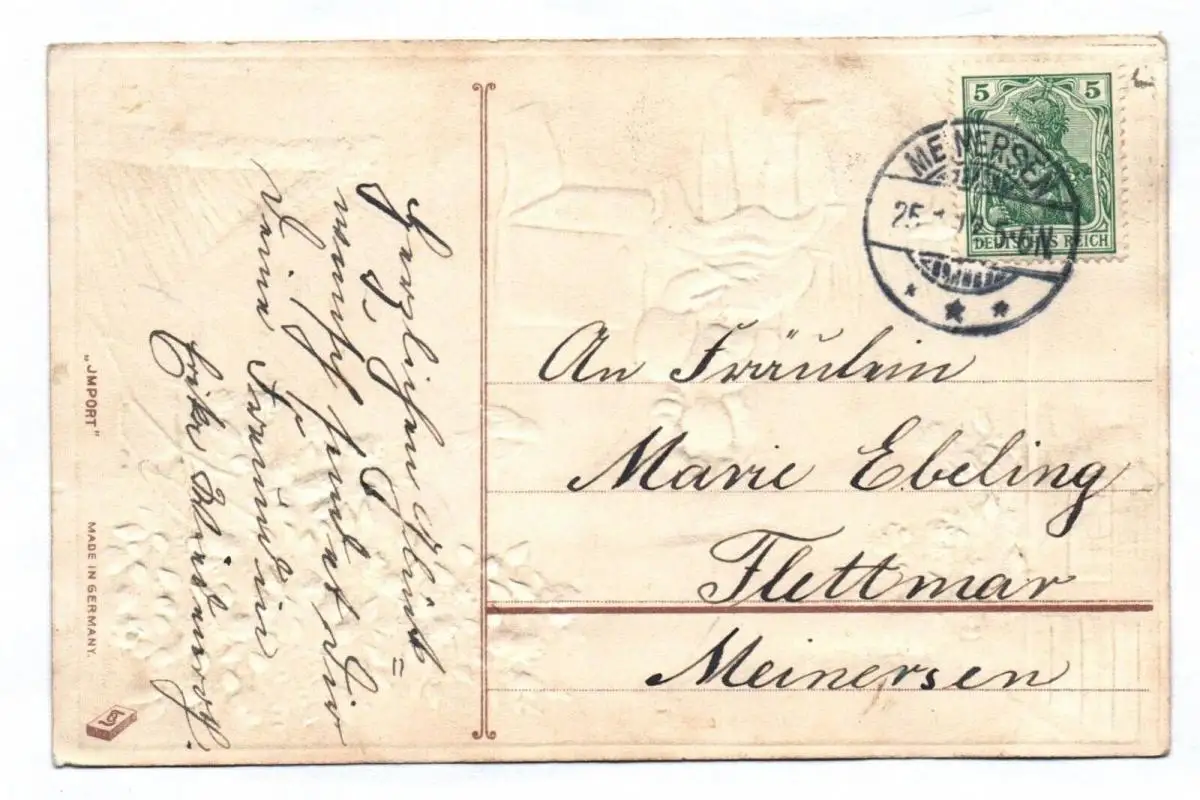 Herzlichen Glück=
wunsch sendet dir
Deine Freundin
Erika
„JMPORT"
MADE IN GERMANY.
5 5
DEUTSCHES REICH
MEINERSEN
25. 5-6N
An Fräulein
Marie Ebeling
Flettmar
Meinersen